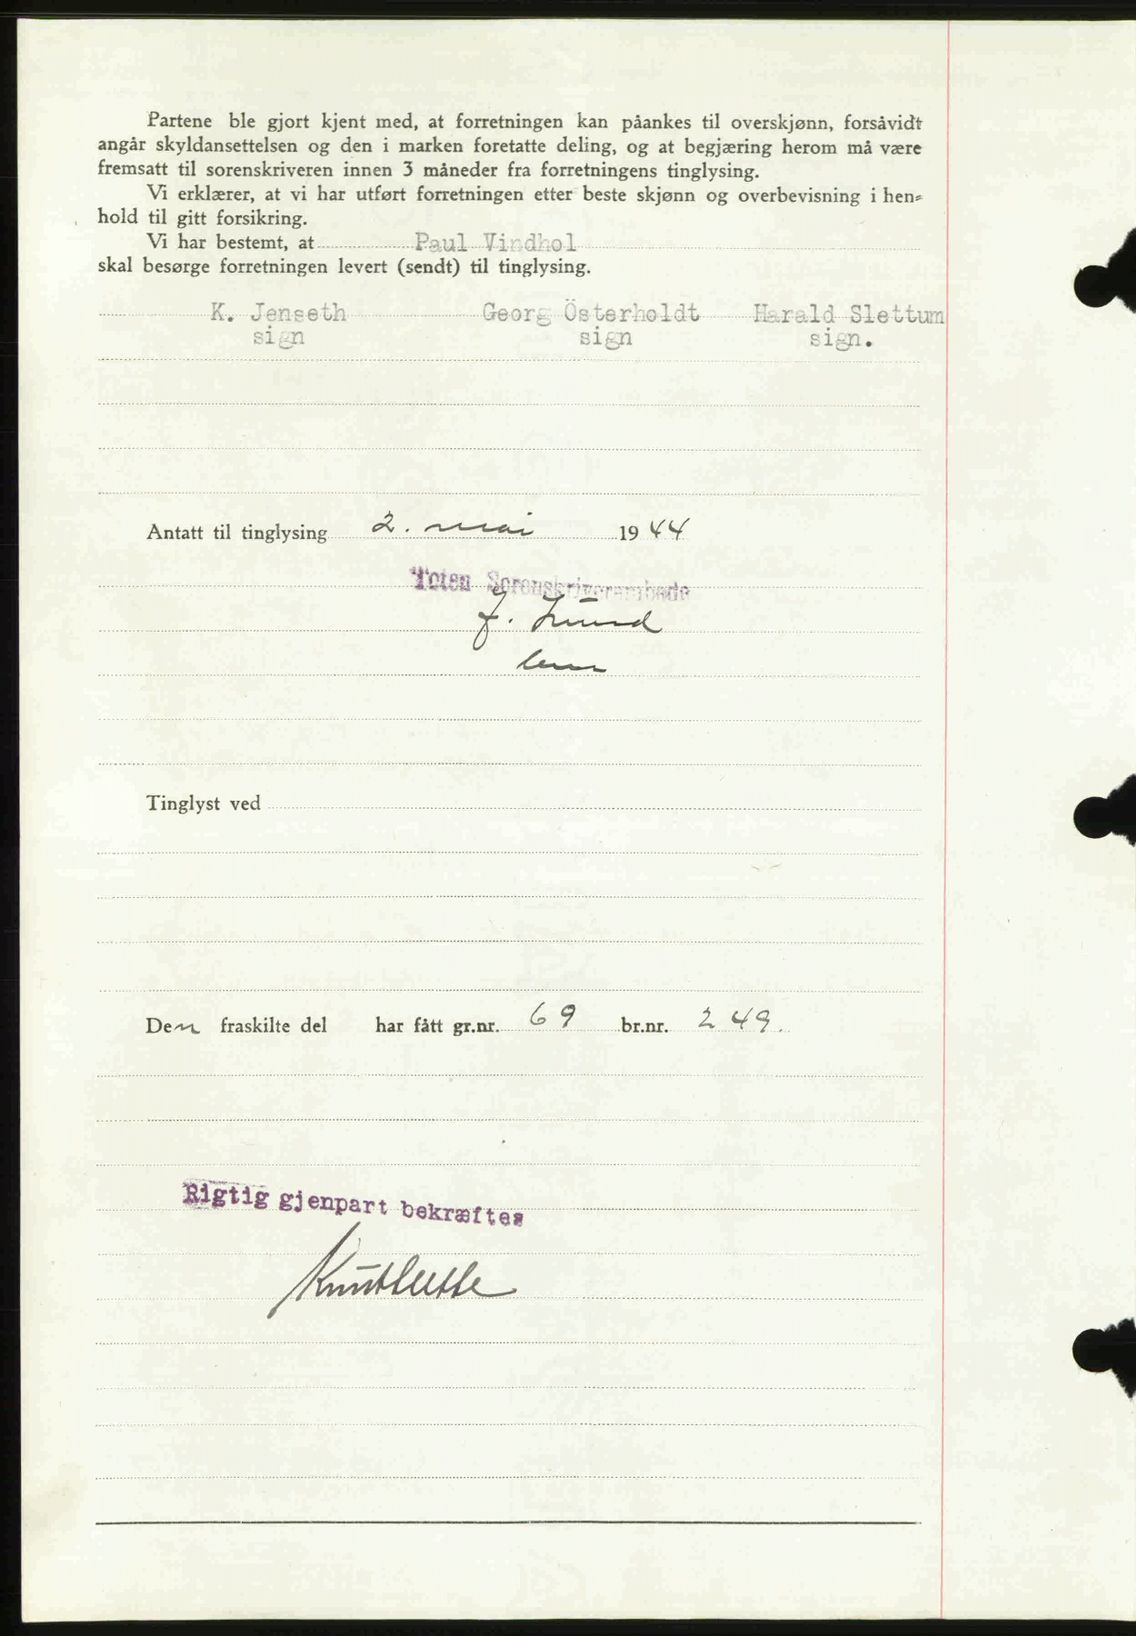 Partene ble gjort kjent med, at forretningen kan påankes til overskjønn, forsåvidt
angår skyldansettelsen og den i marken foretatte deling, og at begjæring herom må være
fremsatt til sorenskriveren innen 3 måneder fra forretningens tinglysing.
Vi erklærer, at vi har utført forretningen etter beste skjønn og overbevisning i hen-
hold til gitt forsikring.
Vi har bestemt, at Paul Vindhol
skal besørge forretningen levert (sendt) til tinglysing.
K. Jenseth Georg Österholdt Harald Slettum
sign sign sign.
Antatt til tinglysing 2. mai 1944
Toten Sorenskriverembede
J. Lund
Tinglyst ved
Den fraskilte del har fått gr.nr. 69 br.nr. 249.
Rigtig gjenpart bekræftes